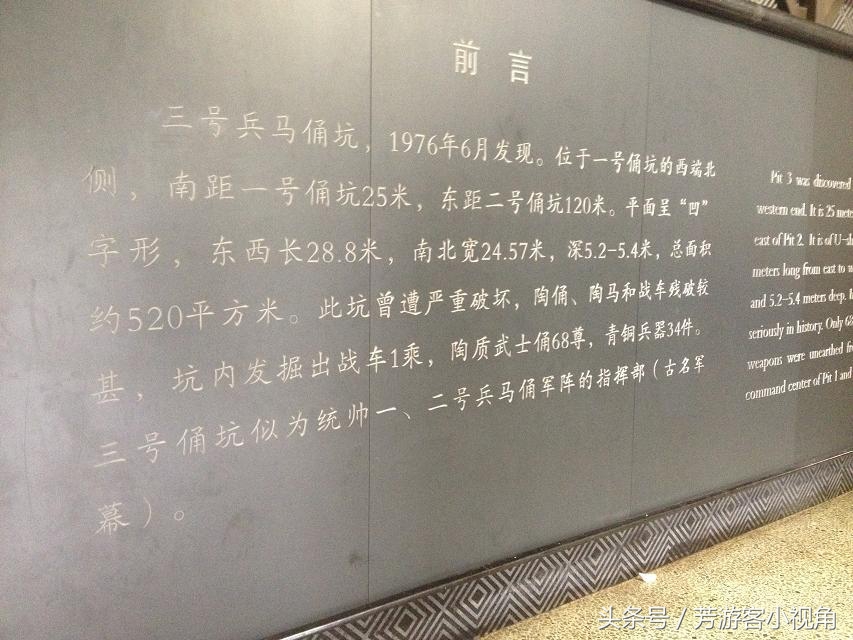 前言
三号兵马俑坑，1976年6月发现。位于一号俑坑的西端北
侧，南距一号俑坑25米，东距二号俑坑120米。平面呈“凹”
字形，东西长28.8米，南北宽24.57米，深5.2-5.4米，总面积
约520平方米。此坑曾遭严重破坏，陶俑、陶马和战车残破较
甚，坑内发掘出战车1乘，陶质武士俑68尊，青铜兵器34件。
三号俑坑似为统帅一、二号兵马俑军阵的指挥部（古名军
幕）。
Pit 3 was discovered
western end. It is 25 mete
east of Pit 2. It is of U-sh
meters long from east to w
and 5.2-5.4 meters deep. I
seriously in history. Only 68
weapons were unearthed fr
command center of Pit 1 and
头条号 / 芳游客小视角